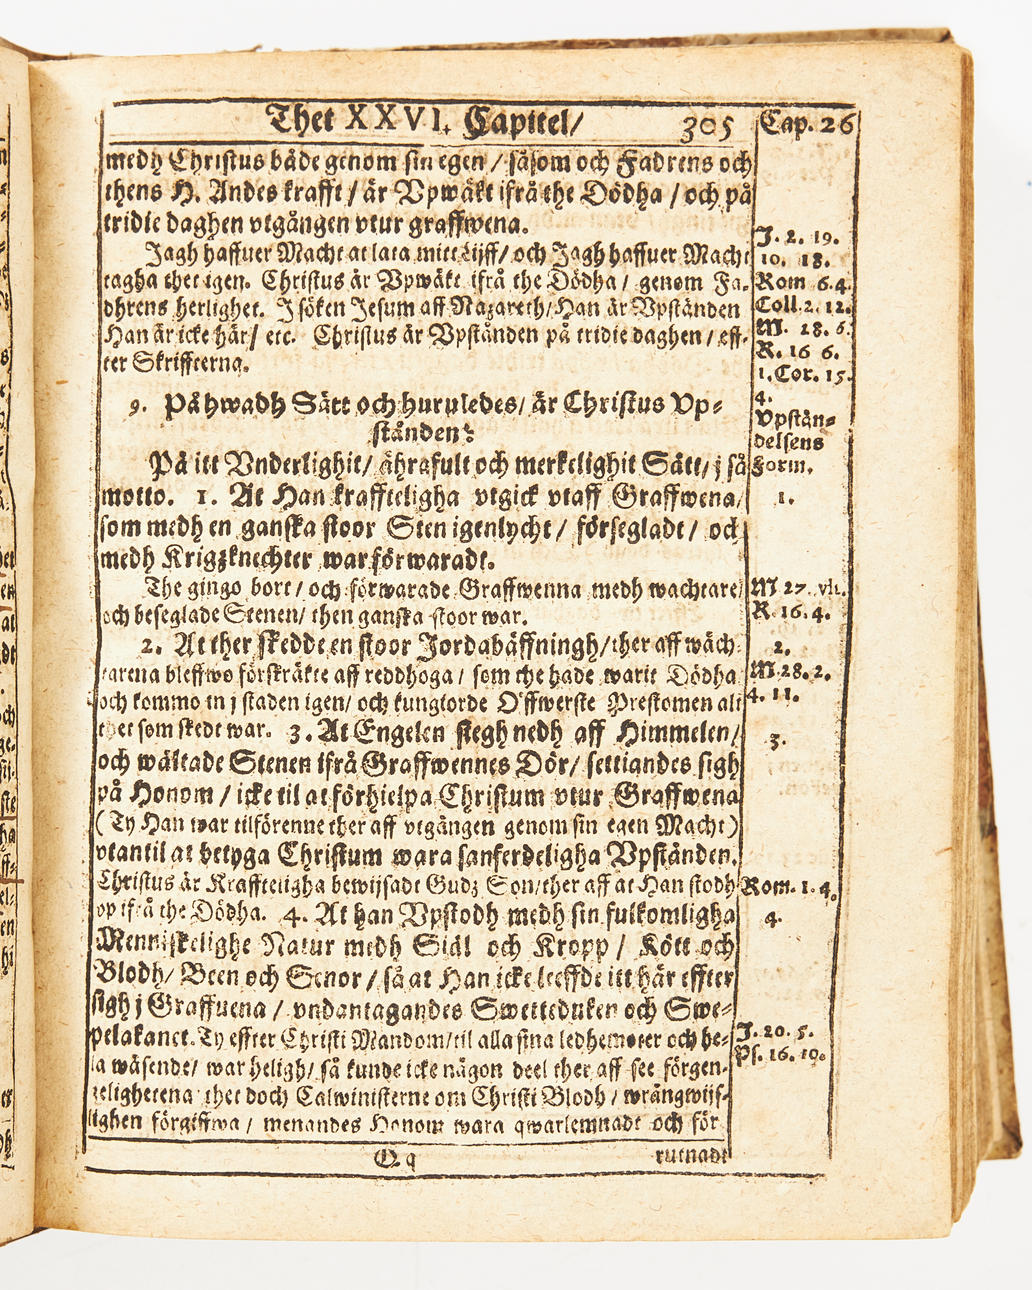 Thet XXVI. Capitel/ 305 Cap. 26
medh Christus både genom sin egen / såsom och Fadrens och
thens H. Andes krafft / är Vpwäkt ifrå the Dödha / och på
tridie daghen vtgången vtur graffwena.
Jagh haffuer Macht at låta mitt Lijff/ och Jagh haffuer Macht
J. 2. 19.
10. 18.
tagha thet igen. Christus är Vpwäkt ifrå the Dödha / genom Fa-
Rom 6.4.
dhrens herlighet. J söken Jesum aff Nazareth/ Han är Vpständen
Coll. 2. 12.
Han är icke här/ etc. Christus är Vpständen på tridie daghen / eff-
M. 28. 6.
ter Skriffterna.
R. 16 6.
1. Cor. 15.
4.
9. På hwadh Sätt och huruledes/ är Christus Vp-
ständen?
Vpstån-
delsens
Form.
På itt Vnderlighit/ ährafult och merkelighit Sätt/ j så
motto. 1. At Han kraffteligha vtgick vtaff Graffwena/
1.
som medh en ganska stoor Sten igenlycht / försegladt / och
medh Krigzknechter war förwaradt.
The gingo bort / och förwarade Graffwenna medh wachtare/
M 27. vlt.
och beseglade Stenen/ then ganska stoor war.
R. 16. 4.
2. At ther skedde en stoor Jordabäffningh/ ther aff wäch-
2.
tarena bleffwo förskräkte aff reddhoga / som the hade warit Dödha
M. 28. 2.
och kommo in j staden igen/ och kungiorde Öffwerste Prestomen alt
4. 11.
thet som skedt war. 3. At Engelen stegh nedh aff Himmelen/
3.
och wältade Stenen ifrå Graffwennes Dör/ settiandes sigh
på Honom / icke til at förhielpa Christum vtur Graffwena
( Ty Han war tilförenne ther aff vtgången genom sin egen Macht )
vtan til at betyga Christum wara sanferdeligha Vpständen.
Christus är Kraffteligha bewijsadt Gudz Son/ ther aff at Han stodh
Rom. 1. 4.
op ifrå the Dödha. 4. At han Vpstodh medh sin fulkomligha
4.
Menniskelighe Natur medh Siäl och Kropp / Kött och
Blodh/ Been och Senor / så at Han icke leeffde itt hår effter
sigh j Graffuena / vndantagandes Swetteduken och Swe-
pelakanet. Ty effter Christi Mandom/ til alla sina ledhemoter och he-
J. 20. 5.
la wäsende/ war heligh/ så kunde icke någon deel ther aff see förgen-
Ps. 16. 10.
zelighetena thet doch Calwinisterne om Christi Blodh / wrångwijs-
lighen förgiffwa / menandes Honom wara qwarlemnadt och för
Q q rutnadt